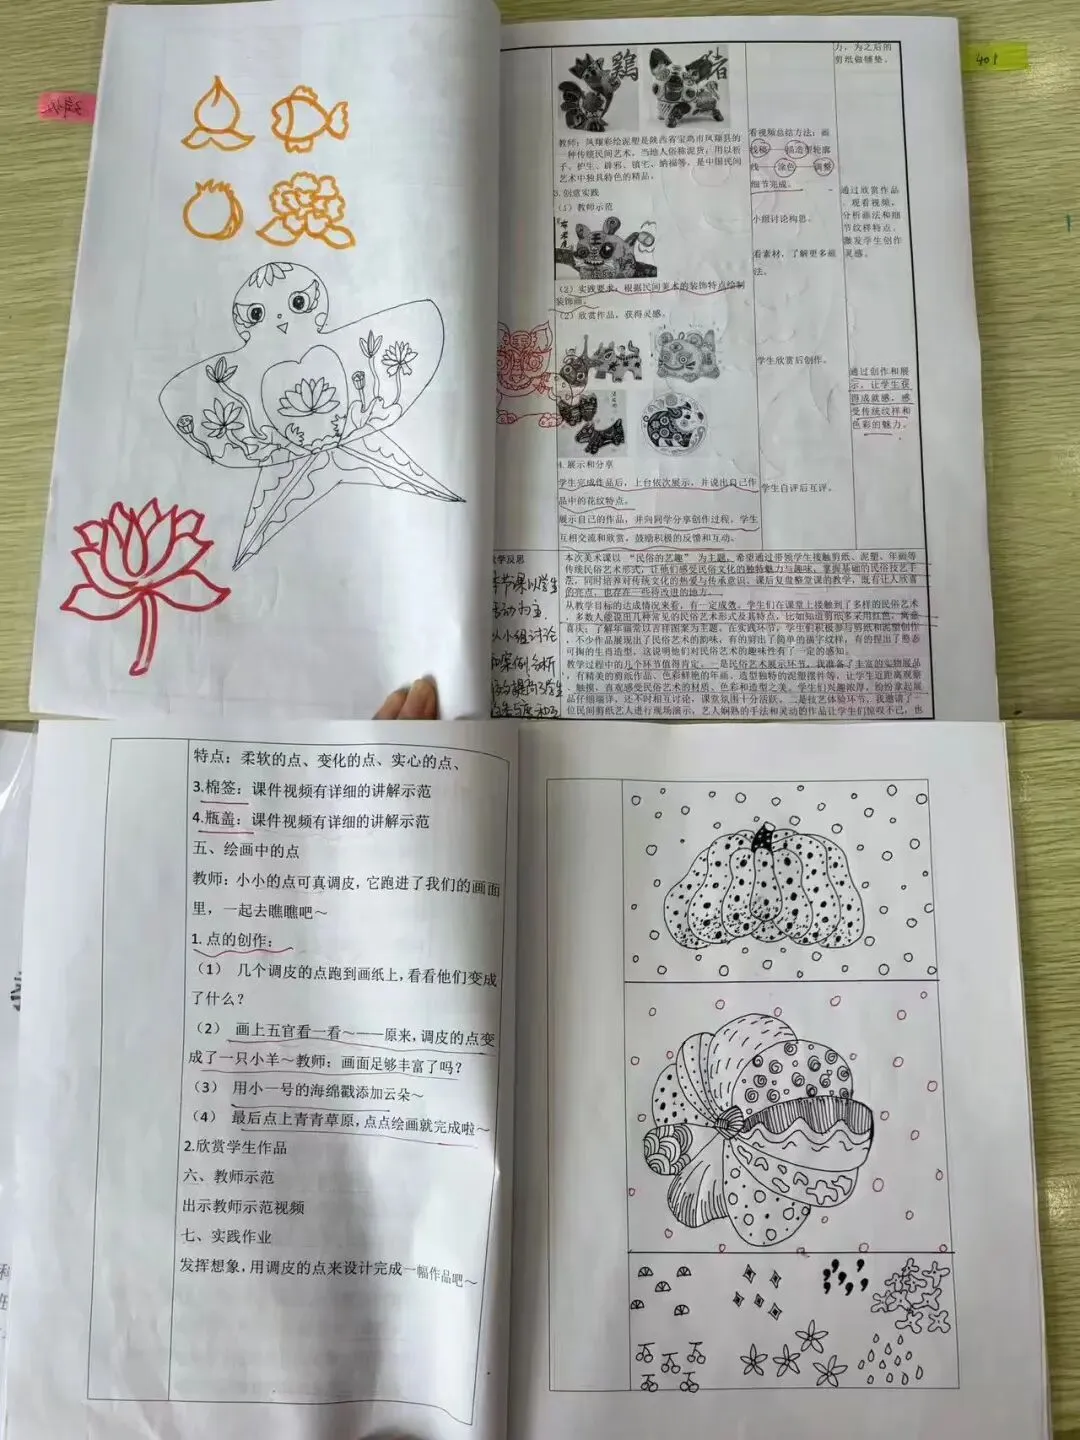 401
鸡
猪
教师：凤翔彩绘泥塑是陕西省宝鸡市凤翔县的
一种传统民间艺术。当地人俗称泥货，用以祈
子、护生、辟邪、镇宅、纳福等，是中国民间
艺术中独具特色的精品。
3.创意实践
（1）教师示范
（2）实践要求：根据民间美术的装饰特点绘制
装饰画。
（2）欣赏作品，获得灵感。
4.展示和分享
学生完成作品后，上台依次展示，并说出自己作
品中的花纹特点。
展示自己的作品，并向同学分享创作过程，学生
互相交流和欣赏，鼓励积极的反馈和互动。
看视频总结方法：画
线稿——描造型轮廓
线——涂色——调整
细节完成。
小组讨论构思。
看素材，了解更多画
法。
学生欣赏后创作。
学生自评后互评。
力，为之后的
剪纸做铺垫。
通过欣赏作品
、观看视频，
分析画法和细
节纹样特点。
激发学生创作
灵感。
通过创作和展
示，让学生获
得成就感，感
受传统纹样和
色彩的魅力。
教学反思
本节课以学生
活动为主
从小组讨论
和案例分析
本次美术课以“民俗的艺趣”为主题，希望通过带领学生接触剪纸、泥塑、年画等
传统民俗艺术形式，让他们感受民俗文化的独特魅力与趣味，掌握基础的民俗技艺手
法，同时培养对传统文化的热爱与传承意识。课后复盘整堂课的教学，既有让人欣喜
的亮点，也存在一些待改进的地方。
从教学目标的达成情况来看，有一定成效。学生们在课堂上接触到了多样的民俗艺术
，多数人能说出几种常见的民俗艺术形式及其特点，比如知道剪纸多采用红色，寓意
喜庆；了解年画常以吉祥图案为主题。在实践环节，学生们积极参与剪纸和泥塑创作
，不少作品展现出了民俗艺术的韵味，有的剪出了简单的福字纹样，有的捏出了憨态
可掬的生肖造型，这说明他们对民俗艺术的趣味性有了一定的感知。
教学过程中的几个环节值得肯定。一是民俗艺术展示环节，我准备了丰富的实物展品
，有精美的剪纸作品、色彩鲜艳的年画、造型独特的泥塑摆件等，让学生近距离观察
、触摸，直观感受民俗艺术的材质、色彩和造型之美。学生们兴趣浓厚，纷纷拿起展
品仔细端详，还不时相互讨论，课堂氛围十分活跃。二是技艺体验环节，我邀请了一
位民间剪纸艺人进行现场演示，艺人娴熟的手法和灵动的作品让学生们惊叹不已，也
特点：柔软的点、变化的点、实心的点、
3.棉签：课件视频有详细的讲解示范
4.瓶盖：课件视频有详细的讲解示范
五、绘画中的点
教师：小小的点可真调皮，它跑进了我们的画面
里，一起去瞧瞧吧～
1.点的创作：
（1） 几个调皮的点跑到画纸上，看看他们变成
了什么？
（2） 画上五官看一看～——原来，调皮的点变
成了一只小羊～教师：画面足够丰富了吗？
（3） 用小一号的海绵戳添加云朵～
（4） 最后点上青青草原，点点绘画就完成啦～
2.欣赏学生作品
六、教师示范
出示教师示范视频
七、实践作业
发挥想象，用调皮的点来设计完成一幅作品吧～